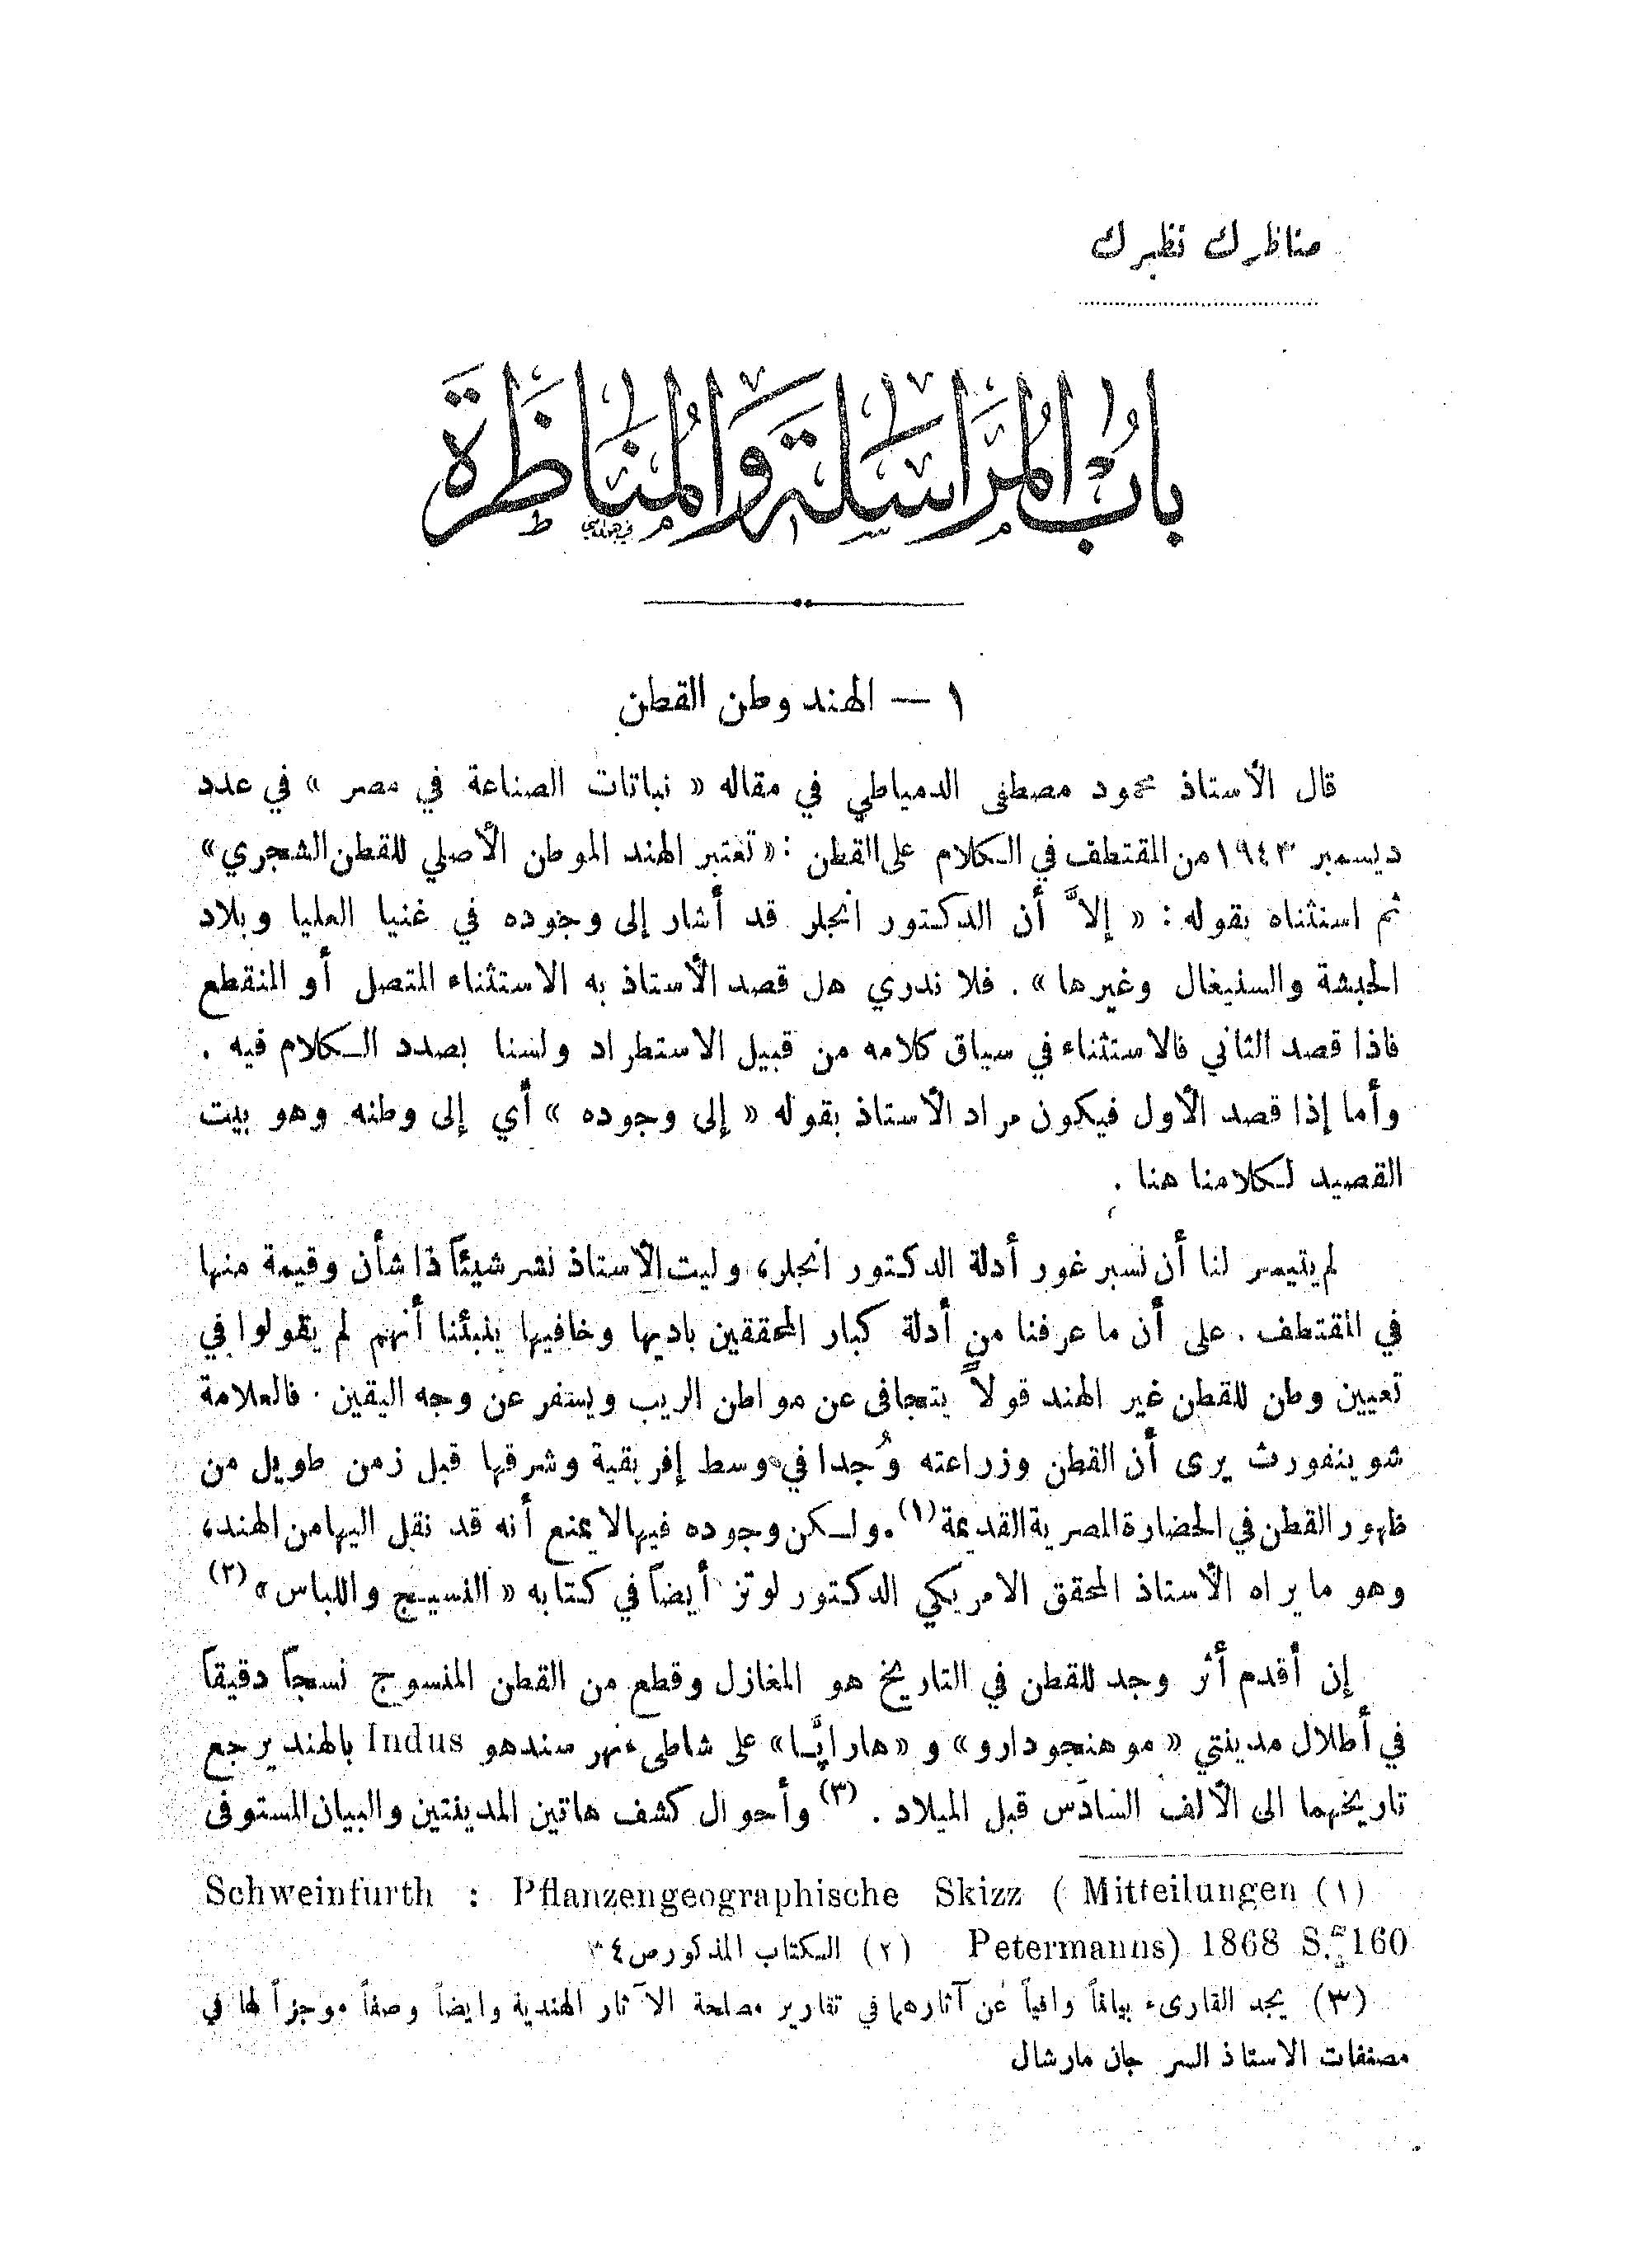 مناظرك نظيرك
بابُ المُرَاسَلة وَالمُنَاظَرَة
١ — الهند وطن القطن
قال الأستاذ محمود مصطفى الدمياطي في مقاله « نباتات الصناعة في مصر » في عدد
ديسمبر ١٩٤٣ من المقتطف في الكلام على القطن : « تعتبر الهند الموطن الأصلي للقطن الشجري »
ثم استثناه بقوله : « إلاَّ أن الدكتور انجلر قد أشار إلى وجوده في غنيا العليا وبلاد
الحبشة والسنيغال وغيرها » . فلا ندري هل قصد الأستاذ به الاستثناء المتصل أو المنقطع
فاذا قصد الثاني فالاستثناء في سياق كلامه من قبيل الاستطراد ولسنا بصدد الكلام فيه .
وأما إذا قصد الأول فيكون مراد الأستاذ بقوله « إلى وجوده » أي إلى وطنه وهو بيت
القصيد لكلامنا هنا .
لم يتيسر لنا أن نسبر غور أدلة الدكتور انجلر، وليت الأستاذ نشر شيئاً ذا شأن وقيمة منها
في المقتطف . على أن ما عرفنا من أدلة كبار المحققين باديها وخافيها ينبئنا أنهم لم يقولوا في
تعيين وطن للقطن غير الهند قولاً يتجافى عن مواطن الريب ويسفر عن وجه اليقين . فالعلامة
شوينفورث يرى أن القطن وزراعته وُجدا في وسط إفريقية وشرقها قبل زمن طويل من
ظهور القطن في الحضارة المصرية القديمة (١) . ولكن وجوده فيها لا يمنع أنه قد نقل اليها من الهند،
وهو ما يراه الأستاذ المحقق الامريكي الدكتور لوتز أيضاً في كتابه « النسيج واللباس » (٢)
إن أقدم أثر وجد للقطن في التاريخ هو المغازل وقطع من القطن المنسوج نسجاً دقيقاً
في أطلال مدينتي « موهنجودارو » و « هاراپَّا » على شاطىء نهر سندهو Indus بالهند يرجع
تاريخهما الى الألف السادس قبل الميلاد . (٣) وأحوال كشف هاتين المدينتين والبيان المستوفى
(١) Schweinfurth : Pflanzengeographische Skizz ( Mitteilungen
Petermanns) 1868 S. 160 (٢) الكتاب المذكور ص ٣٤
(٣) يجد القارىء بياناً وافياً عن آثارهما في تقارير مصلحة الآثار الهندية وايضاً وصفاً موجزاً لها في
مصنفات الاستاذ السر جان مارشال